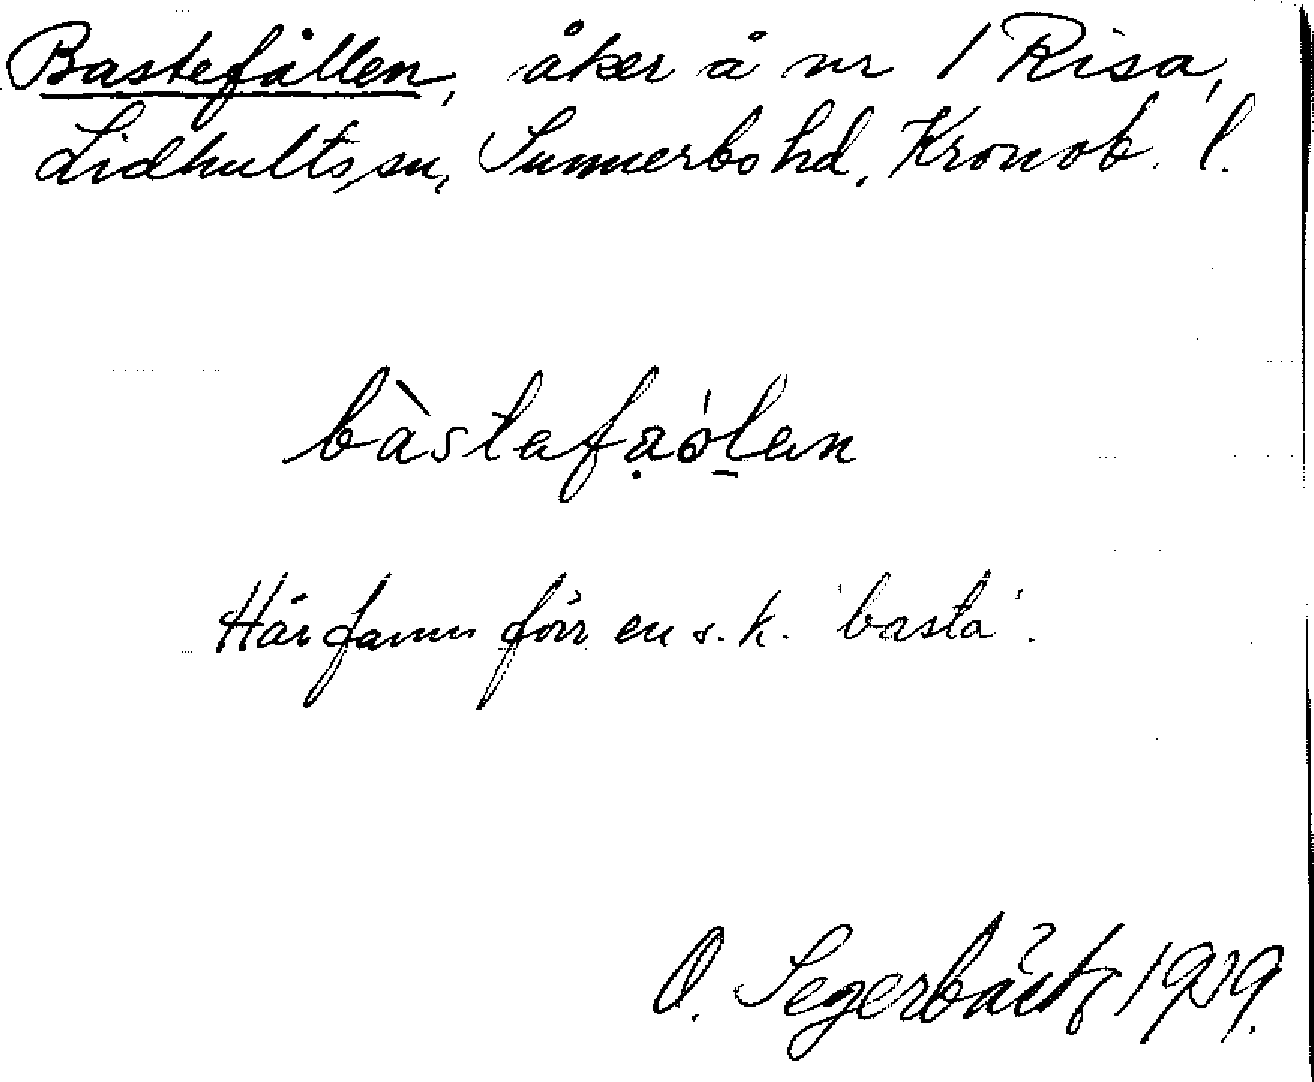 Bastefållen, åker å nr 1 Risa,
Lidhults sn, Sunnerbo hd, Kronob. l.
bàstafa̤ólan
Här fanns förr en s.k. 'basta'.
O. Segerbäck 1919.